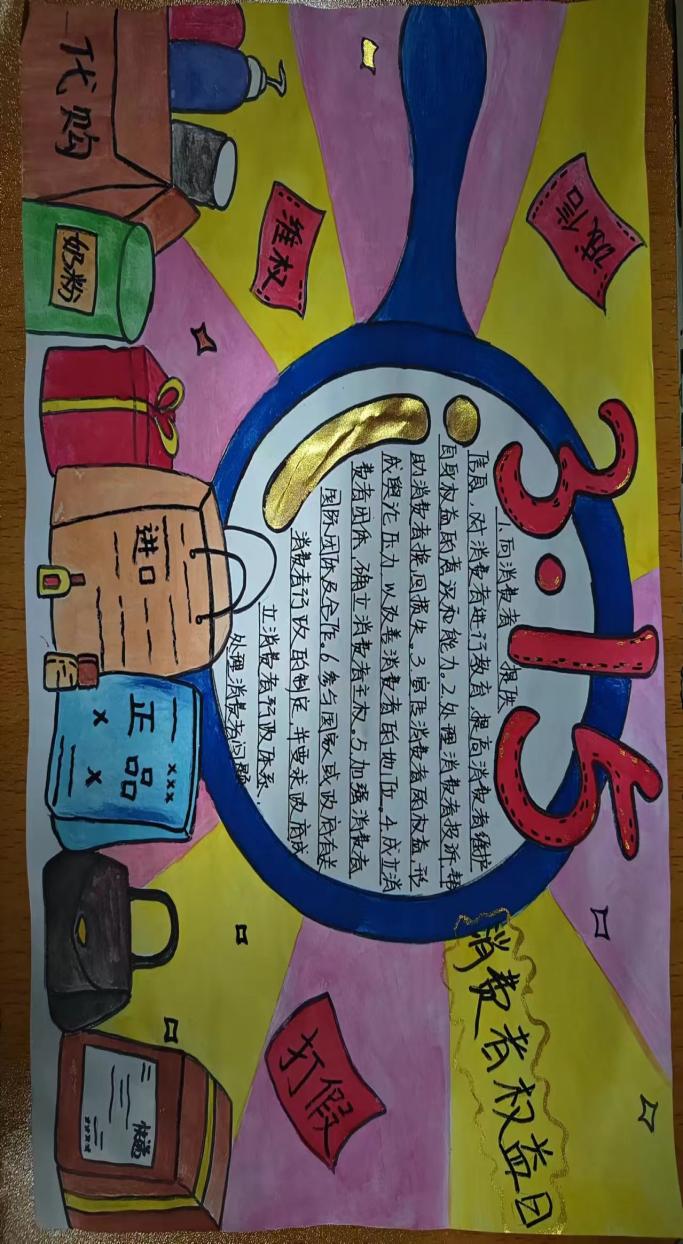 3·15
诚信
消费者权益日
1.向消费者提供
信息,对消费者进行教育,提高消费者维护
自身权益的意识和能力.2.处理消费者投诉,帮
助消费者挽回损失.3.宣传消费者的权益,形
成舆论压力,以改善消费者的地位.4.成立消
费者团体,确立消费者主权.5.加强消费者
国际团体及合作.6.参与国家或政府有关
消费者行政的制定,并要求政府成
立消费者行政体系,
处理消费者问题
维权
打假
代购
奶粉
进口
xxx
正品
x x
快递